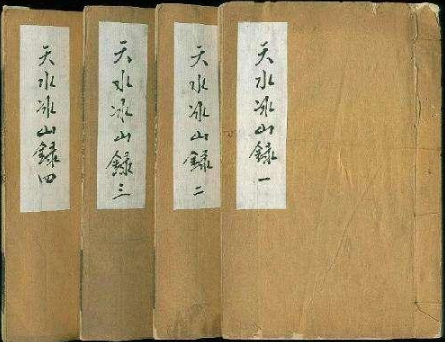 天水冰山錄一
天水冰山錄二
天水冰山錄三
天水冰山錄四